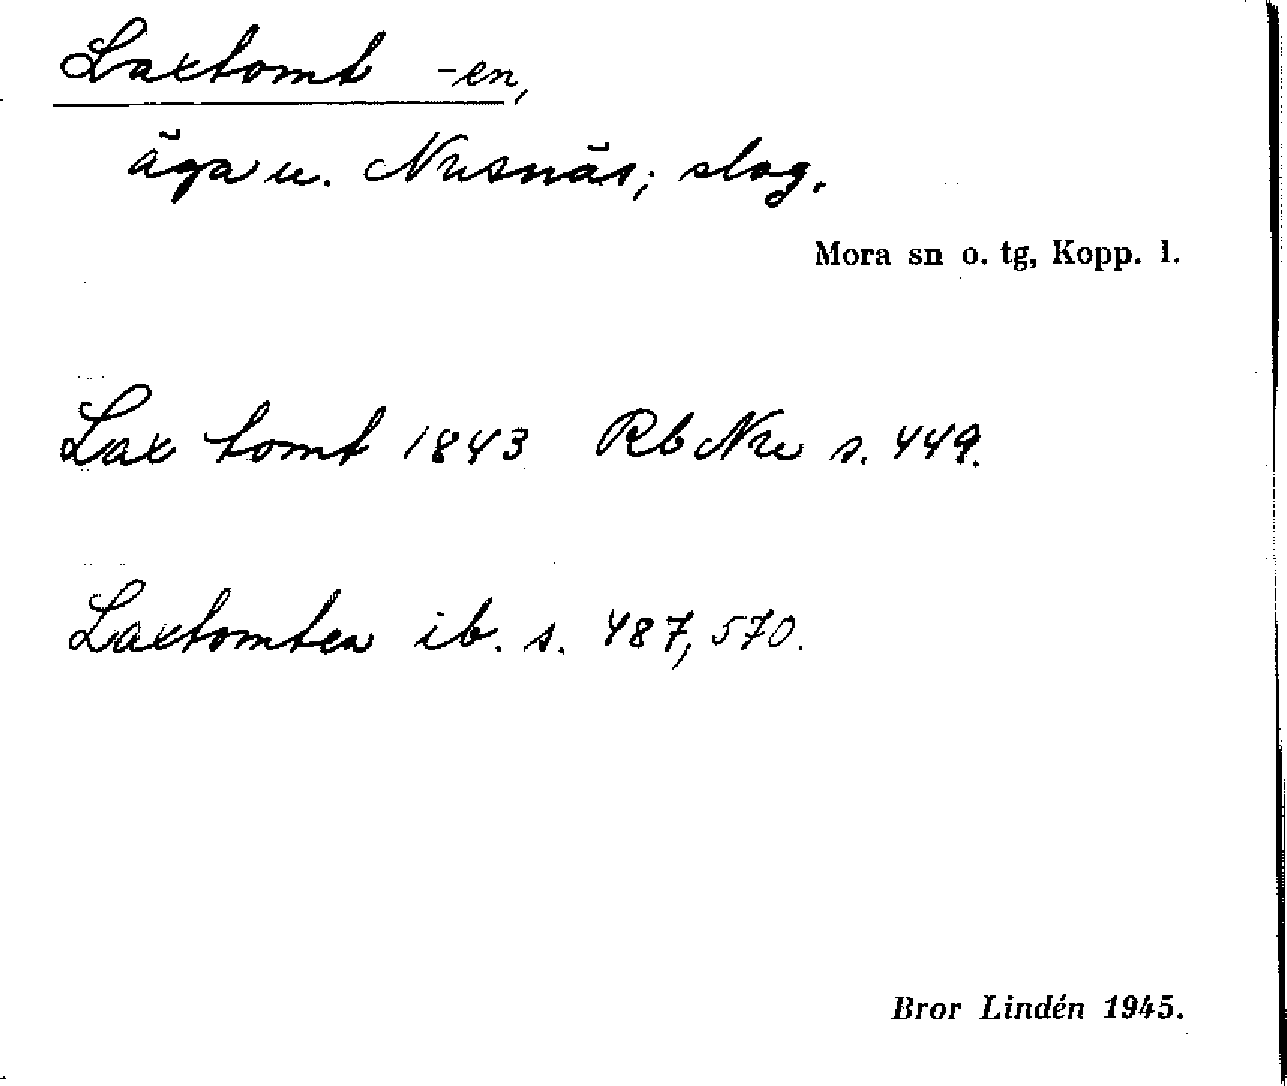 Laxtomt -en,
äga u. Nusnäs; slog.
Mora sn o. tg, Kopp. l.
Lax tomt 1843 Rb Nu s. 449.
Laxtomten ib. s. 487, 570.
Bror Lindén 1945.